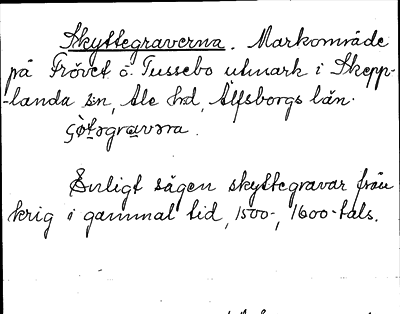 Skyttegraverna. Markområde
på Frövet o. Tussebo utmark i Skepp-
-landa sn, Ale hd, Älfsborgs län.
Enligt sägen skyttegravar från
krig i gammal tid, 1500-, 1600-tals.